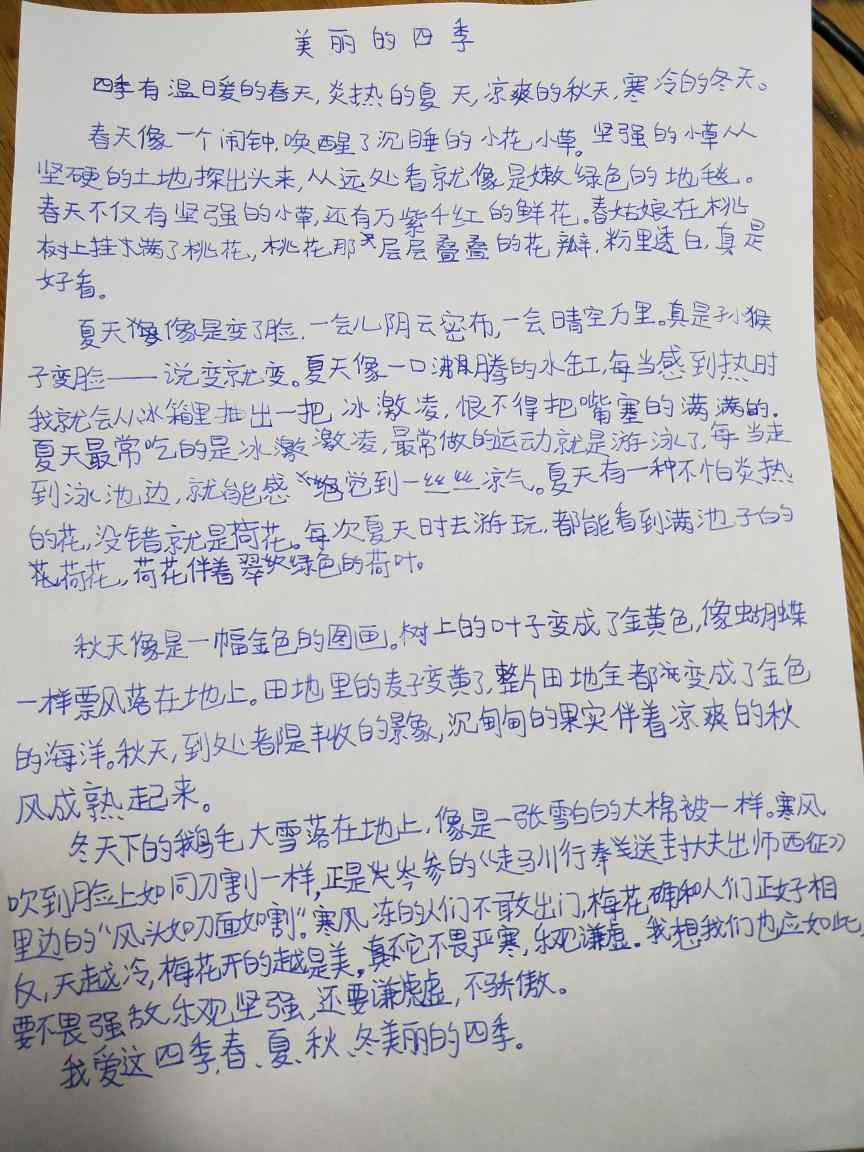 美丽的四季
四季有温暖的春天,炎热的夏天,凉爽的秋天,寒冷的冬天。
春天像一个闹钟,唤醒了沉睡的小花小草。坚强的小草从
坚硬的土地探出头来,从远处看就像是嫩绿色的地毯。
春天不仅有坚强的小草,还有万紫千红的鲜花。春姑娘在桃
树上挂满了桃花,桃花那层层叠叠的花瓣,粉里透白,真是
好看。
夏天像是变了脸,一会儿阴云密布,一会晴空万里。真是孙猴
子变脸——说变就变。夏天像一口沸腾的水缸,每当感到热时
我就会从冰箱里抽出一把冰激凌,恨不得把嘴塞的满满的.
夏天最常吃的是冰激凌,最常做的运动就是游泳了,每当走
到泳池边,就能感觉到一丝丝凉气。夏天有一种不怕炎热
的花,没错就是荷花。每次夏天时去游玩,都能看到满池子的
荷花,荷花伴着翠绿色的荷叶。
秋天像是一幅金色的图画。树上的叶子变成了金黄色,像蝴蝶
一样飘落在地上。田地里的麦子变黄了,整片田地全都变成了金色
的海洋。秋天,到处都是丰收的景象,沉甸甸的果实伴着凉爽的秋
风成熟起来。
冬天下的鹅毛大雪落在地上,像是一张雪白的大棉被一样。寒风
吹到脸上如同刀割一样,正是岑参的《走马川行奉送封大夫出师西征》
里边的“风头如刀面如割”。寒风冻的人们不敢出门,梅花确和人们正好相
反,天越冷,梅花开的越是美。真不它不畏严寒,乐观谦虚。我想我们也应如此,
要不畏强敌,乐观坚强,还要谦虚,不骄傲。
我爱这四季,春、夏、秋、冬美丽的四季。